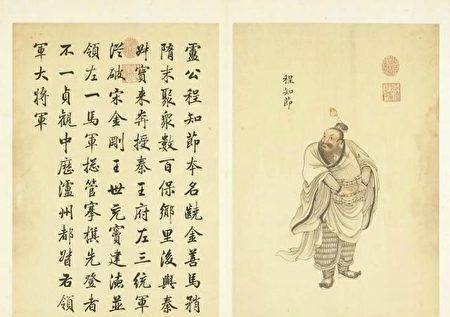 程知節
盧公程知節本名齩金善馬矟
隋末聚衆數百保鄉里後與秦
叔寶来奔授秦王府左三統軍
從破宋金剛王世充竇建德並
領左一馬軍總管搴旗先登者
不一貞觀中歷瀘州都督右領
軍大將軍